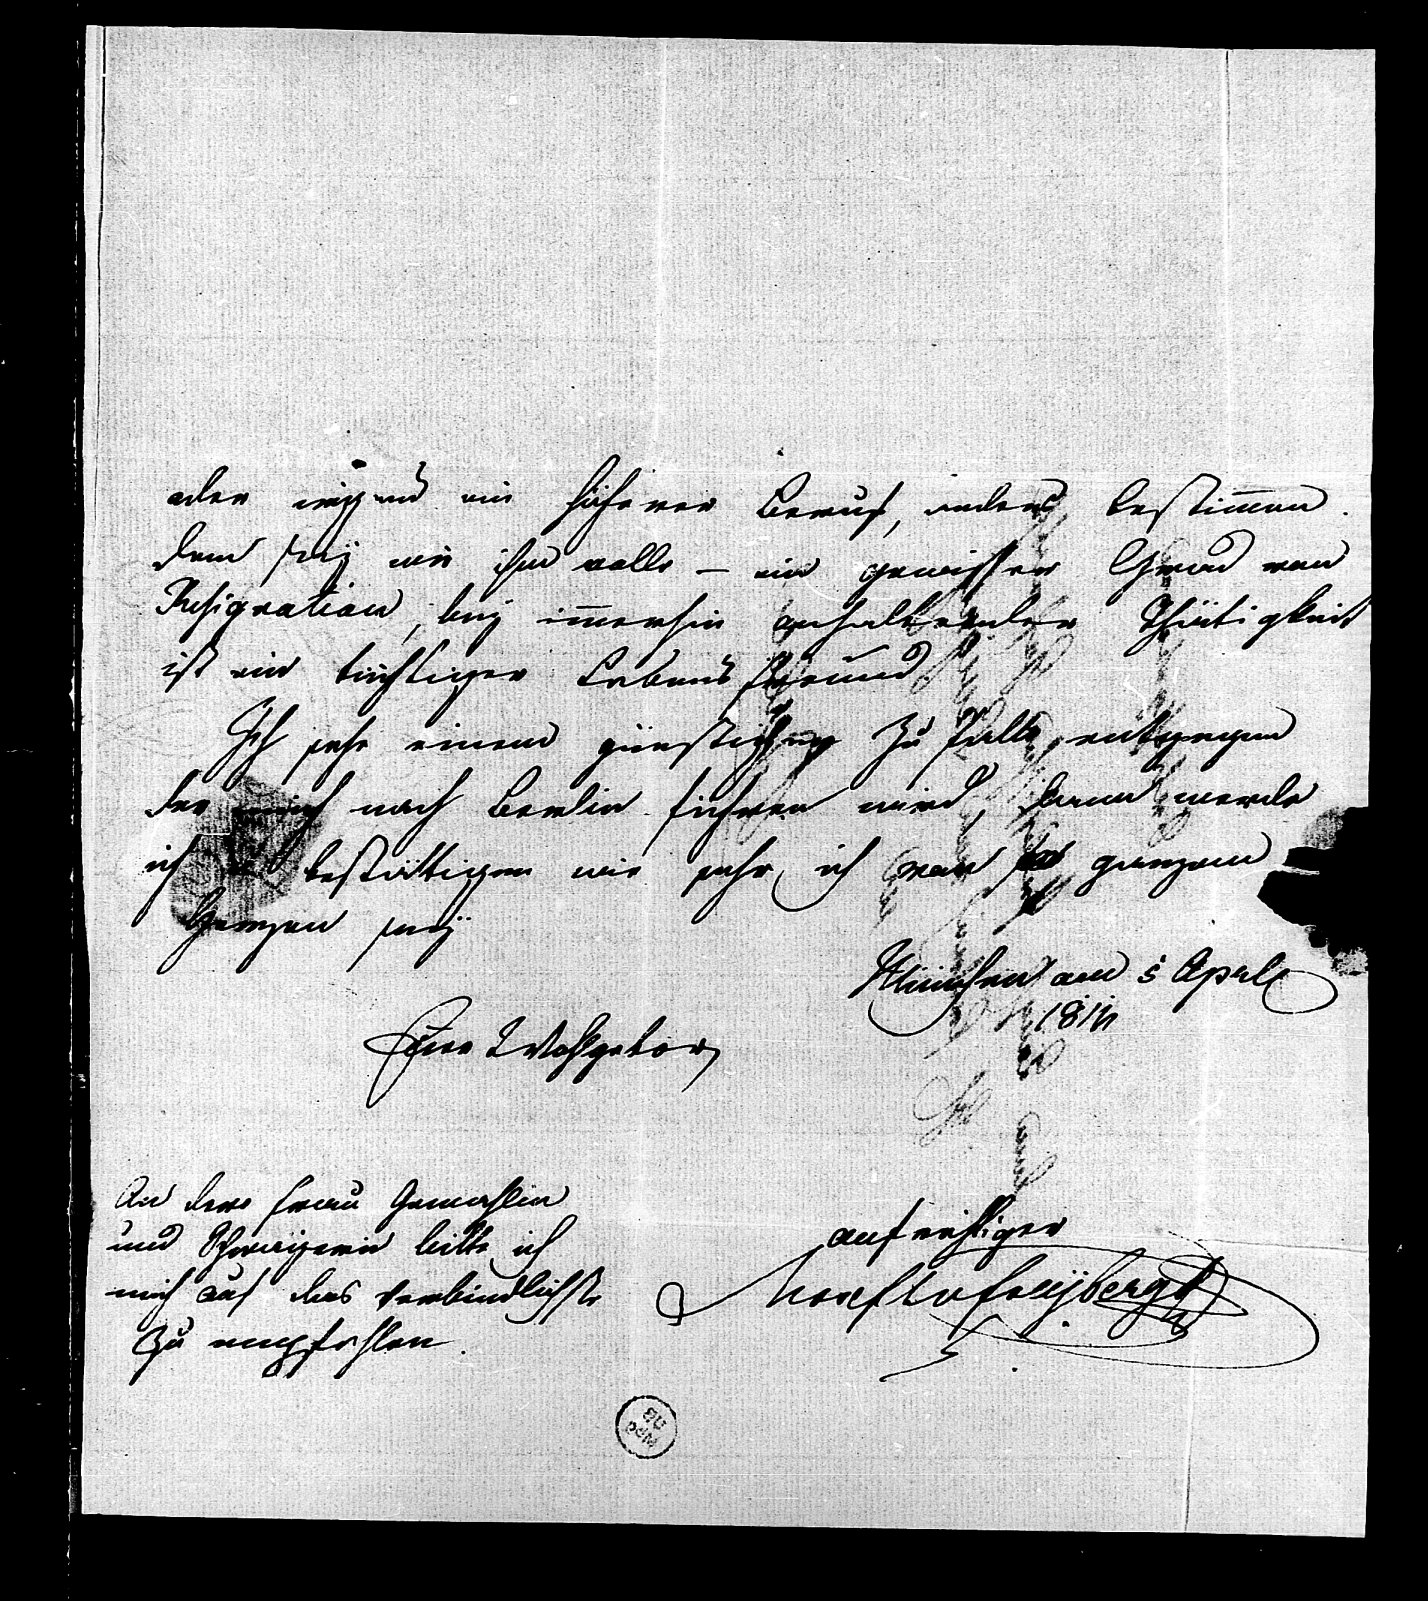 oder irgend ein höherer Beruf, anders bestimmen.
dem sey wie ihm wolle – ein gewisser Grad von
Resignation, bey immerhin anhaltender Thätigkeit
ist ein tüchtiger Lebensfreund
Ich sehe einem günstigen Zufalle entgegen
der mich nach Berlin führen wird, dann werde
ich bestättigen wie sehr ich von ganzem
Herzen sey
München am 5 April
1814
Euer Wohlgebor
An dero Frau Gemahlin
und Schwägerin bitte ich
mich auf das verbindlichste
zu empfehlen.
aufrichtiger
Freyberg